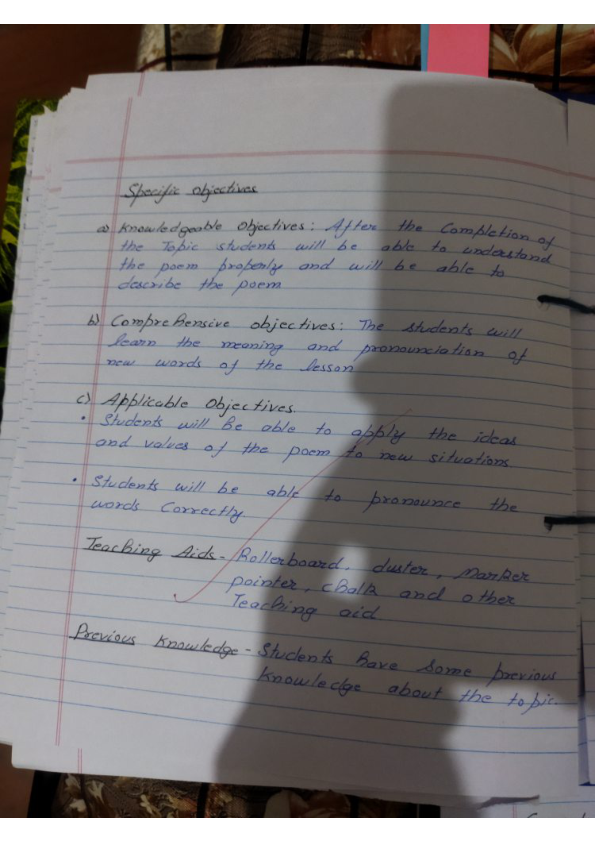 Specific objectives
a) Knowledgeable Objectives: After the Completion of
the Topic students will be able to understand
the poem properly and will be able to
describe the poem
b) Comprehensive objectives: The students will
learn the meaning and pronounciation of
new words of the lesson
c) Applicable Objectives.
• Students will be able to apply the ideas
and values of the poem to new situations
• Students will be able to pronounce the
words Correctly
Teaching Aids - Rollerboard, duster, Marker
pointer, chalk and other
Teaching aid
Previous Knowledge - Students have some previous
Knowledge about the topic.